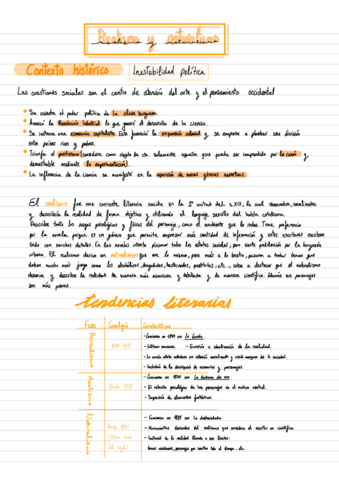 Realismo y naturalismo
Contexto histórico Inestabilidad política
Las cuestiones sociales son el centro de atención del arte y el pensamiento occidental
Se asienta el poder político de la clase burguesa.
Avanzó la Revolución industrial lo que generó el desarrollo de la ciencia.
Se instaura una economía capitalista. Esto favoreció la expansión colonial y se empezó a plantear una división
entre países ricos y pobres.
Triunfa el positivismo (considera como objeto de cto. solamente aquello que puede ser comprendido por la razón y
demostrable mediante la experimentación).
La influencia de la ciencia se manifestó en la aparición de nuevos géneros narrativos.
El realismo fue una corriente literaria nacida en la 2ª mitad del s.XIX, la cual documentaba, analizaba
y describía la realidad de forma objetiva y utilizando el lenguaje sencillo del habla cotidiana.
Describe tanto los rasgos psicológicos y físicos del personaje, como el ambiente que le rodea. Tiene preferencia
por la novela porque es un género que permite expresar más cantidad de información y estos escritores escriben
todo con muchos detalles. En las novelas vamos a encontrar todas las clases sociales, pero sienten predilección por la burguesía
urbana. El realismo deriva en naturalismo que era lo mismo, pero más a lo bestia, pasaron a tratar temas que
daban mucho más juego como los alcohólicos, drogadictos, trastornados, prostitutas, etc., cabe a destacar que el naturalismo
observa y describe la realidad de manera más minuciosa y detallada y de manera científica. Además sus personajes
son más pobres.
tendencias literarias
Fase Cronología Características
Prerrealismo
1844-1870
- Comienza en 1849 con La Gaviota.
- Cuadros costumbres → Evasión e idealización de la realidad.
- La novela estaba saturada con intención moralizante y exige mejoras de la sociedad.
- Inclusión de la descripción de escenarios y personajes.
Realismo
Desde 1870
- Comienza en 1870 con La fontana de oro.
- El retrato psicológico de los personajes es el motivo central.
- Desaparición de elementos fantásticos.
Naturalismo
Desde 1880
(última década
del siglo)
- Comienza en 1881 con La desheredada.
- Movimiento derivado del realismo que considera al escritor un científico.
- Imitación de la realidad llevada a sus límites:
temas escabrosos, personajes que sueltan todo el tiempo... etc.